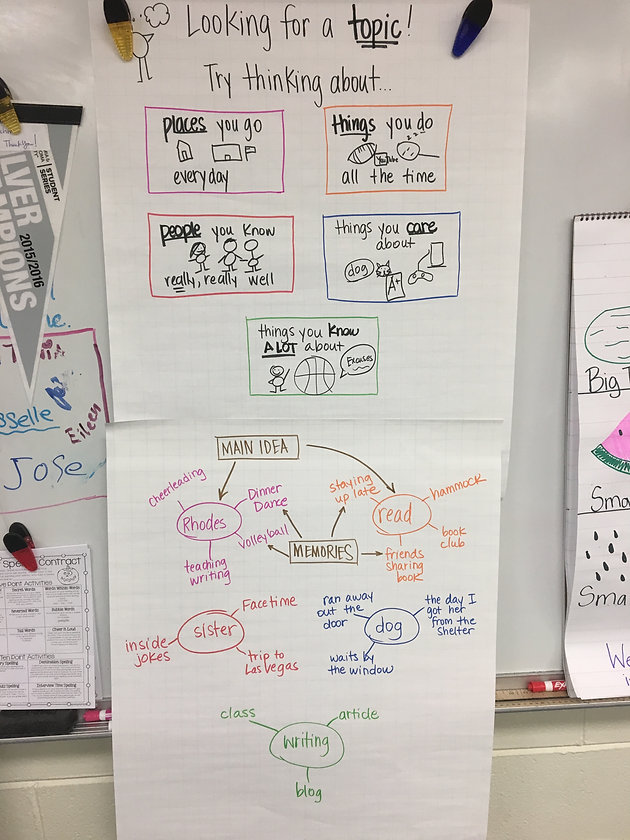 Looking for a topic!
Try thinking about...
places you go
everyday
things you do
YouTube
all the time
people you know
really, really well
things you care
about
dog
A+
things you know
A LOT about
Excuses
MAIN IDEA
Cheerleading
Dinner
Dance
Rhodes
Volleyball
teaching
writing
MEMORIES
staying
up late
hammock
read
book
club
friends
sharing
book
Facetime
sister
inside
jokes
trip to
Las Vegas
ran away
out the
door
the day I
got her
from the
Shelter
dog
waits by
the window
class
article
writing
blog
Thank You!
STUDENT
SERIES
2015/2016
Eileen
JOSE
Contract
Point Activities
Big T
Sma
Sma
We